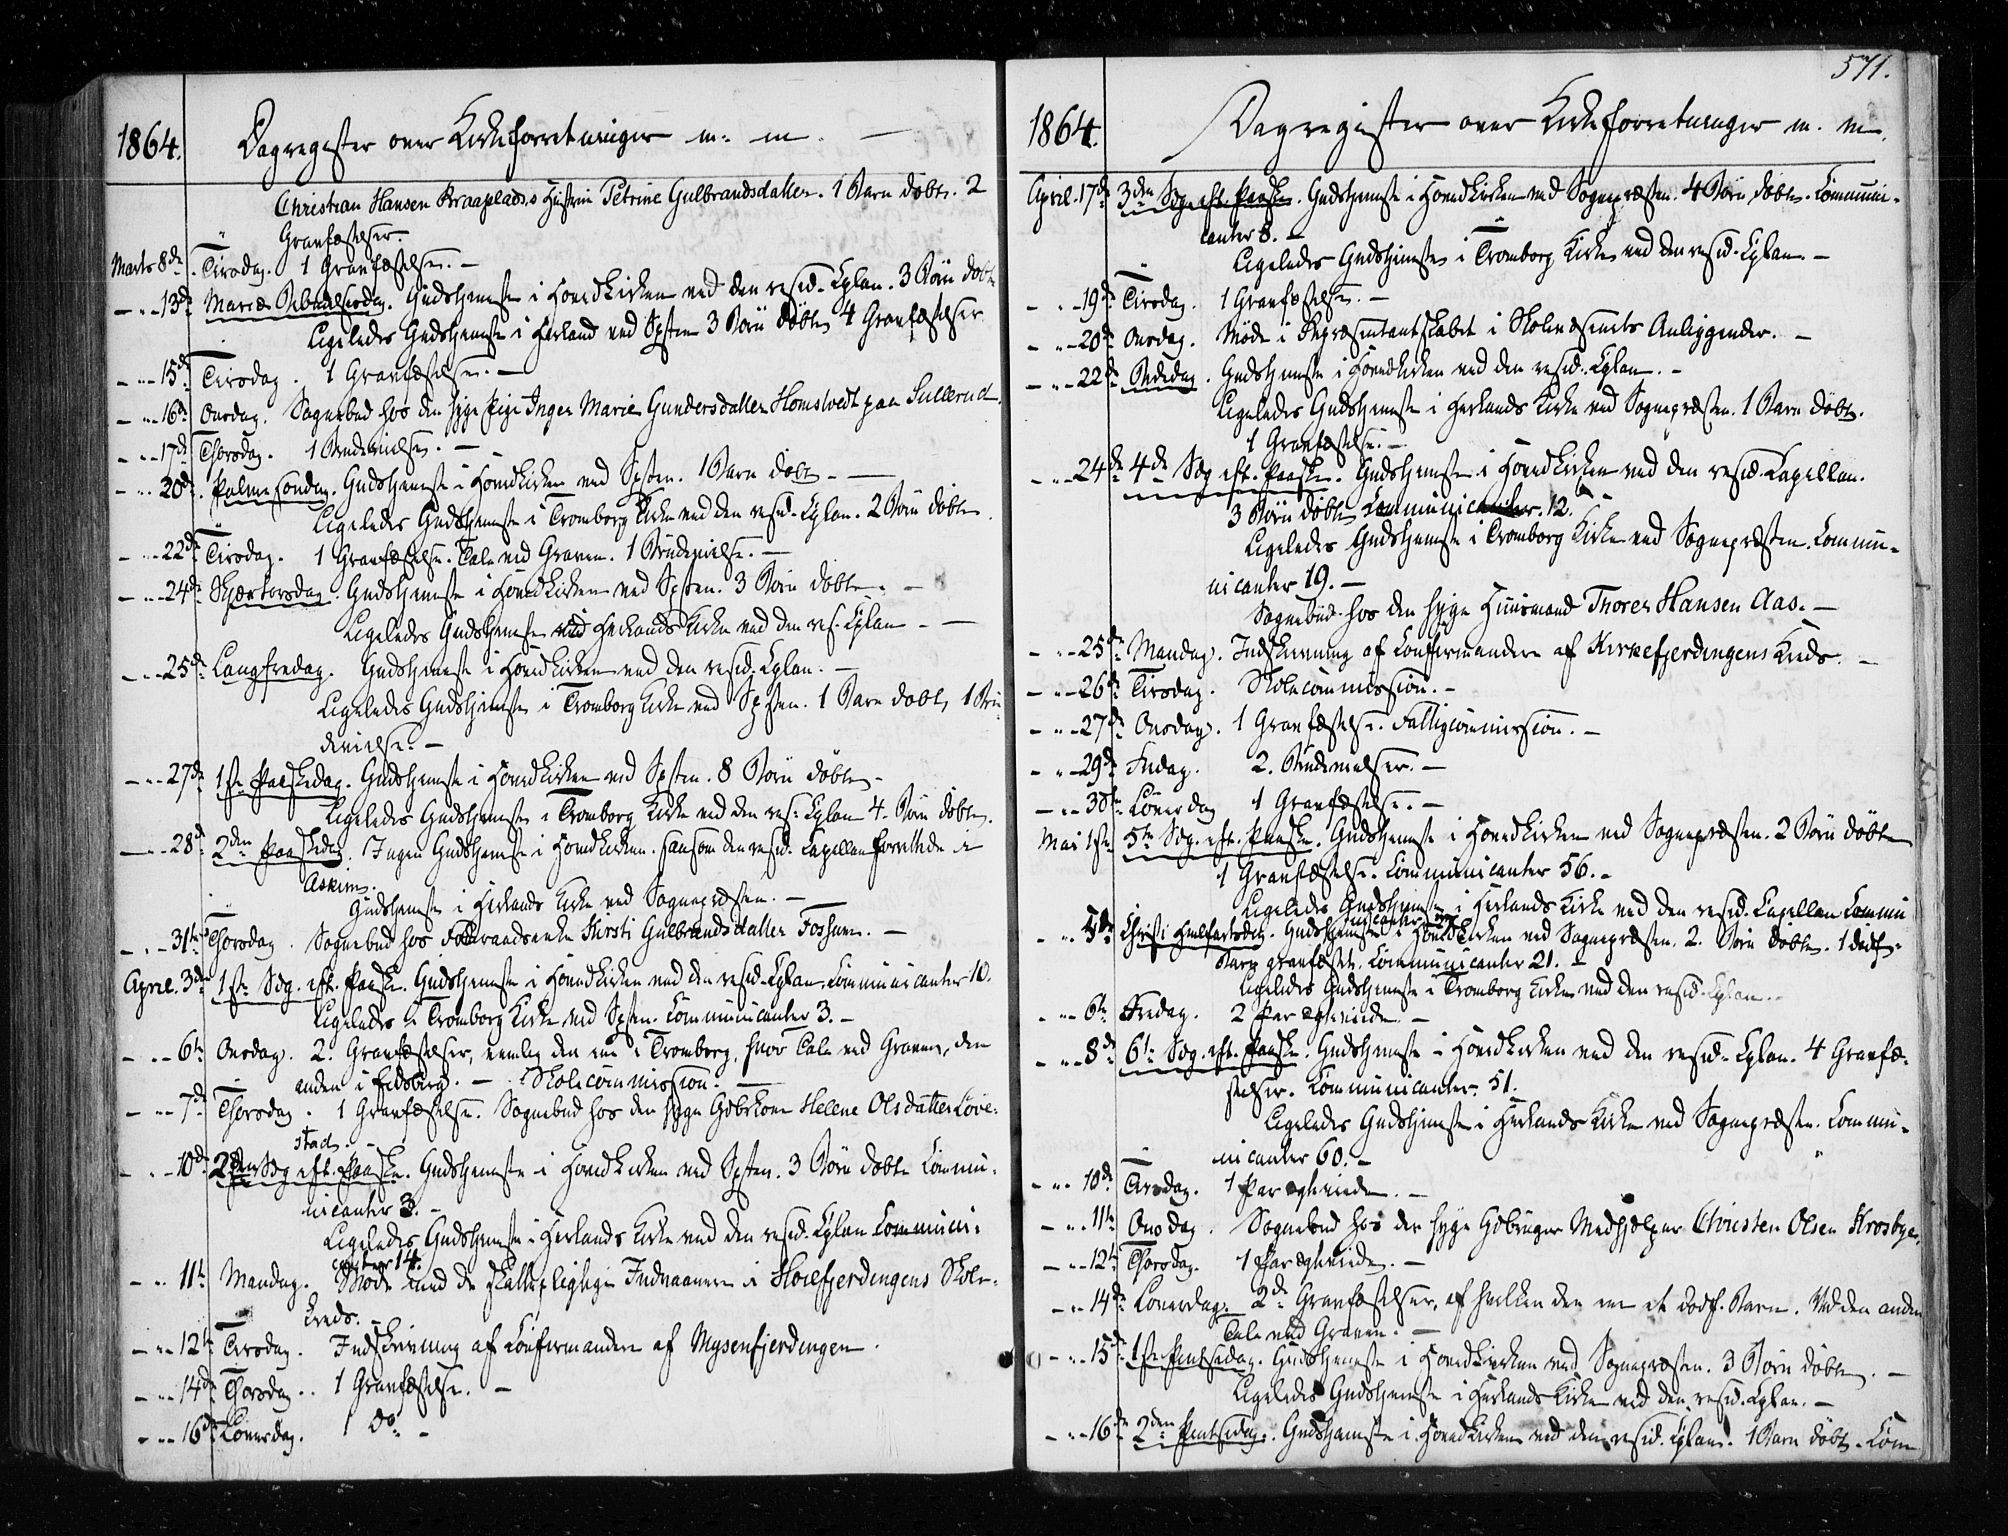 1864. Dagregister over Kirkeforretninger m. m.
Christian Hansen Kraaplads's Hustru Petrine Gulbrandsdatter. 1 Barn døbt. 2
Gravfæstelser.
Marts 8de Tirsdag. 1 Gravfæstelse. —
— " — 13de Mariæ Bebudelsesdag. Gudstjeneste i Hovedkirken ved den resid. Cplan. 3 Børn døbte
Ligeledes Gudstjeneste i Herland ved Spsten 3 Børn døbte 4 Gravfæstelser
— " — 15de Tirsdag. 1 Gravfæstelse. —
— " — 16de Onsdag. Sognebud hos den syge Pige Inger Marie Gundersdatter Homstvedt paa Sullerud.
— " — 17de Thorsdag. 1 Brudevielse. —
— " — 20de Palmesøndag. Gudstjeneste i Hovedkirken ved Spsten. 1 Barn døbt. —
Ligeledes Gudstjeneste i Tromborg Kirke ved den resid. Cplan. 2 Børn døbte.
— " — 22de Tirsdag. 1 Gravfæstelse. Tale ved Graven. 1 Brudevielse. —
— " — 24de Skjærtorsdag. Gudstjeneste i Hovedkirken ved Spsten. 3 Børn døbte. —
Ligeledes Gudstjeneste ved Herlands Kirke ved den res. Cplan —
— " — 25de Langfredag. Gudstjeneste i Hovedkirken ved den resid. Cplan. —
Ligeledes Gudstjeneste i Tromborg Kirke ved Spsten. 1 Barn døbt, 1 Bru-
devielse. —
— " — 27de 1ste Paaskedag. Gudstjeneste i Hovedkirken ved Spsten. 8 Børn døbte —
Ligeledes Gudstjeneste i Tromborg Kirke ved den res. Cplan 4 Børn døbte.
— " — 28de 2den Paaskedag. Ingen Gudstjeneste i Hovedkirken, saasom den resid. Capellan forrettede i
Askim.
Gudstjeneste i Herlands Kirke ved Sognepræsten. —
— " — 31te Thorsdag. Sognebud hos Føderaadsenke Kirsti Gulbrandsdatter Fossum. —
April. 3de 1ste Sdg. eft. Paaske. Gudstjeneste i Hovedkirken ved den resid. Cplan. Communicanter 10.
Ligeledes i Tromborg Kirke ved Spsten. Communicanter 3. —
— " — 6te Onsdag. 2. Gravfæstelser, nemlig den ene i Tromborg, hvor Tale ved Graven, den
anden i Eidsberg. — Skolecommission. —
— " — 7de Thorsdag. 1 Gravfæstelse. Sognebud hos den syge Gdbrkone Helene Olsdatter Løve-
stad. —
— " — 10de 2den Sdg eft. Paaske. Gudstjeneste i Hovedkirken ved Spsten. 3 Børn døbte Commu-
nicanter 3. —
Ligeledes Gudstjeneste i Herlands Kirke ved den resid. Cplan Communi-
canter 14.
— " — 11te Mandag. Møde med de skattepligtige Indvaanere i Hoielfjerdingens Skole-
kreds. —
— " — 12te Tirsdag. Indskrivning af Confirmander af Mysenfjerdingen.
— " — 14de Thorsdag. 1 Gravfæstelse. —
— " — 16de Løverdag. 1 do. —
571.
1864. Dagregister over Kirkeforretninger m. m.
April. 17de 3die Sdg. eft. Paaske. Gudstjeneste i Hovedkirken ved Sognepræsten. 4 Børn døbte. Communi-
canter 8. —
Ligeledes Gudstjeneste i Tromborg Kirke ved den resid. Cplan. —
— " — 19de Tirsdag. 1 Gravfæstelse. —
— " — 20de Onsdag. Møde i Repræsentantskabet i Skolevæsenets Anliggender. —
— " — 22de Bededag. Gudstjeneste i Hovedkirken ved den resid. Cplan. —
Ligeledes Gudstjeneste i Herlands Kirke ved Sognepræsten. 1 Barn døbt.
1 Gravfæstelse. —
— " — 24de 4de Sdg eft. Paaske. Gudstjeneste i Hovedkirken ved den resid. Capellan.
3 Børn døbte Communicanter. 12.
Ligeledes Gudstjeneste i Tromborg Kirke ved Sognepræsten. Commu-
nicanter 19. —
Sognebud hos den syge Huusmand Thorer Hansen Aas. —
— " — 25de Mandag. Indskrivning af Confirmandere af Kirkefjerdingens Kreds. —
— " — 26de Tirsdag. Skolecommission. —
— " — 27de Onsdag. 1 Gravfæstelse. Fattigcommission. —
— " — 29de Fredag. 2. Brudevielser. —
— " — 30te Løverdag 1 Gravfæstelse. —
Mai 1ste 5te Sdg. eft. Paaske. Gudstjeneste i Hovedkirken ved Sognepræsten. 2 Børn døbte
1 Gravfæstelse. Communicanter 56. —
Ligeledes Gudstjeneste i Herlands Kirke ved den resid. Capellan Commu
nicanter
— " — 5te Christi Himmelfartsdag. Gudstjeneste i Hovedkirken ved Sognepræsten. 2. Børn døbte. 1 dødf.
Barn gravfæstet. Communicanter 21. —
Ligeledes Gudstjeneste i Tromborg Kirke ved den resid. Cplan. —
— " — 6te Fredag. 2 Par egteviede. —
— " — 8de 6te Sdg. eft. Paaske. Gudstjeneste i Hovedkirken ved den resid. Cplan. 4 Gravfæ-
stelser. Communicanter. 51.
Ligeledes Gudstjeneste i Herlands Kirke ved Sognepræsten. Commu-
nicanter 60. —
— " — 10de Tirsdag. 1 Par egteviede. —
— " — 11te Onsdag. Sognebud hos den syge Gdbruger Medhjælper Christen Olsen Krosbye.
— " — 12te Thorsdag. 1 Par egteviede. —
— " — 14de Løverdag. 2de Gravfæstelser, af hvilken den ene et dødf. Barn. Ved den anden
Tale ved Graven. —
— " — 15de 1ste Pintsedag. Gudstjeneste i Hovedkirken ved Sognepræsten. 3 Børn døbte. —
Ligeledes Gudstjeneste i Herlands Kirke ved den resid. Cplan. —
— " — 16de 2den Pintsedag. Gudstjeneste i Hovedkirken ved den resid. Cplan. 1 Barn døbt. Com